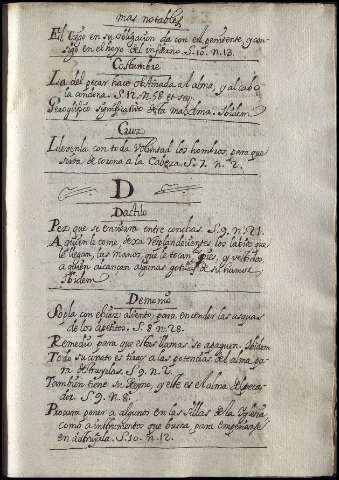 mas notables
El Ciego en su obligacion da con el penitente, y con-
sigo en el hoyo del infierno. S. 10. n. 13.
Costumbre
La del pecar hace obstinada al alma, y al cabo
la condena. S. 12. n. 58 et seq.
Geroglifico significativo de la mala Alma. Ibidem.
Cruz
Llevenla con toda voluntad los hombros, para que
sirva de corona a la Cabeza. S. 7. n. 2.
D
Dactilo
Pez que se encierra entre conchas. S. 9. n. 21.
A quien le come, dexa resplandecientes los labios que
le llegan, las manos, que le tocan, los pies, y vestidos
a quien alcanzan algunas gotas de su
Ibidem
Demonio
Sopla con eficaz aliento, para encender las asquas
de los apetitos. S. 8. n. 28.
Remedio para que estas llamas se apaguen. Ibidem
Todo su conato es tirar a las potencias del alma pa-
ra destruylas. S. 9. n. 2.
Tambien tiene su Reyno, y este es el alma del peca-
dor. S. 9. n. 8.
Procura poner a algunos en las sillas de la Yglesia
como a instrumentos que busca, para empeñarse
en destruyla. S. 10. n. 12.